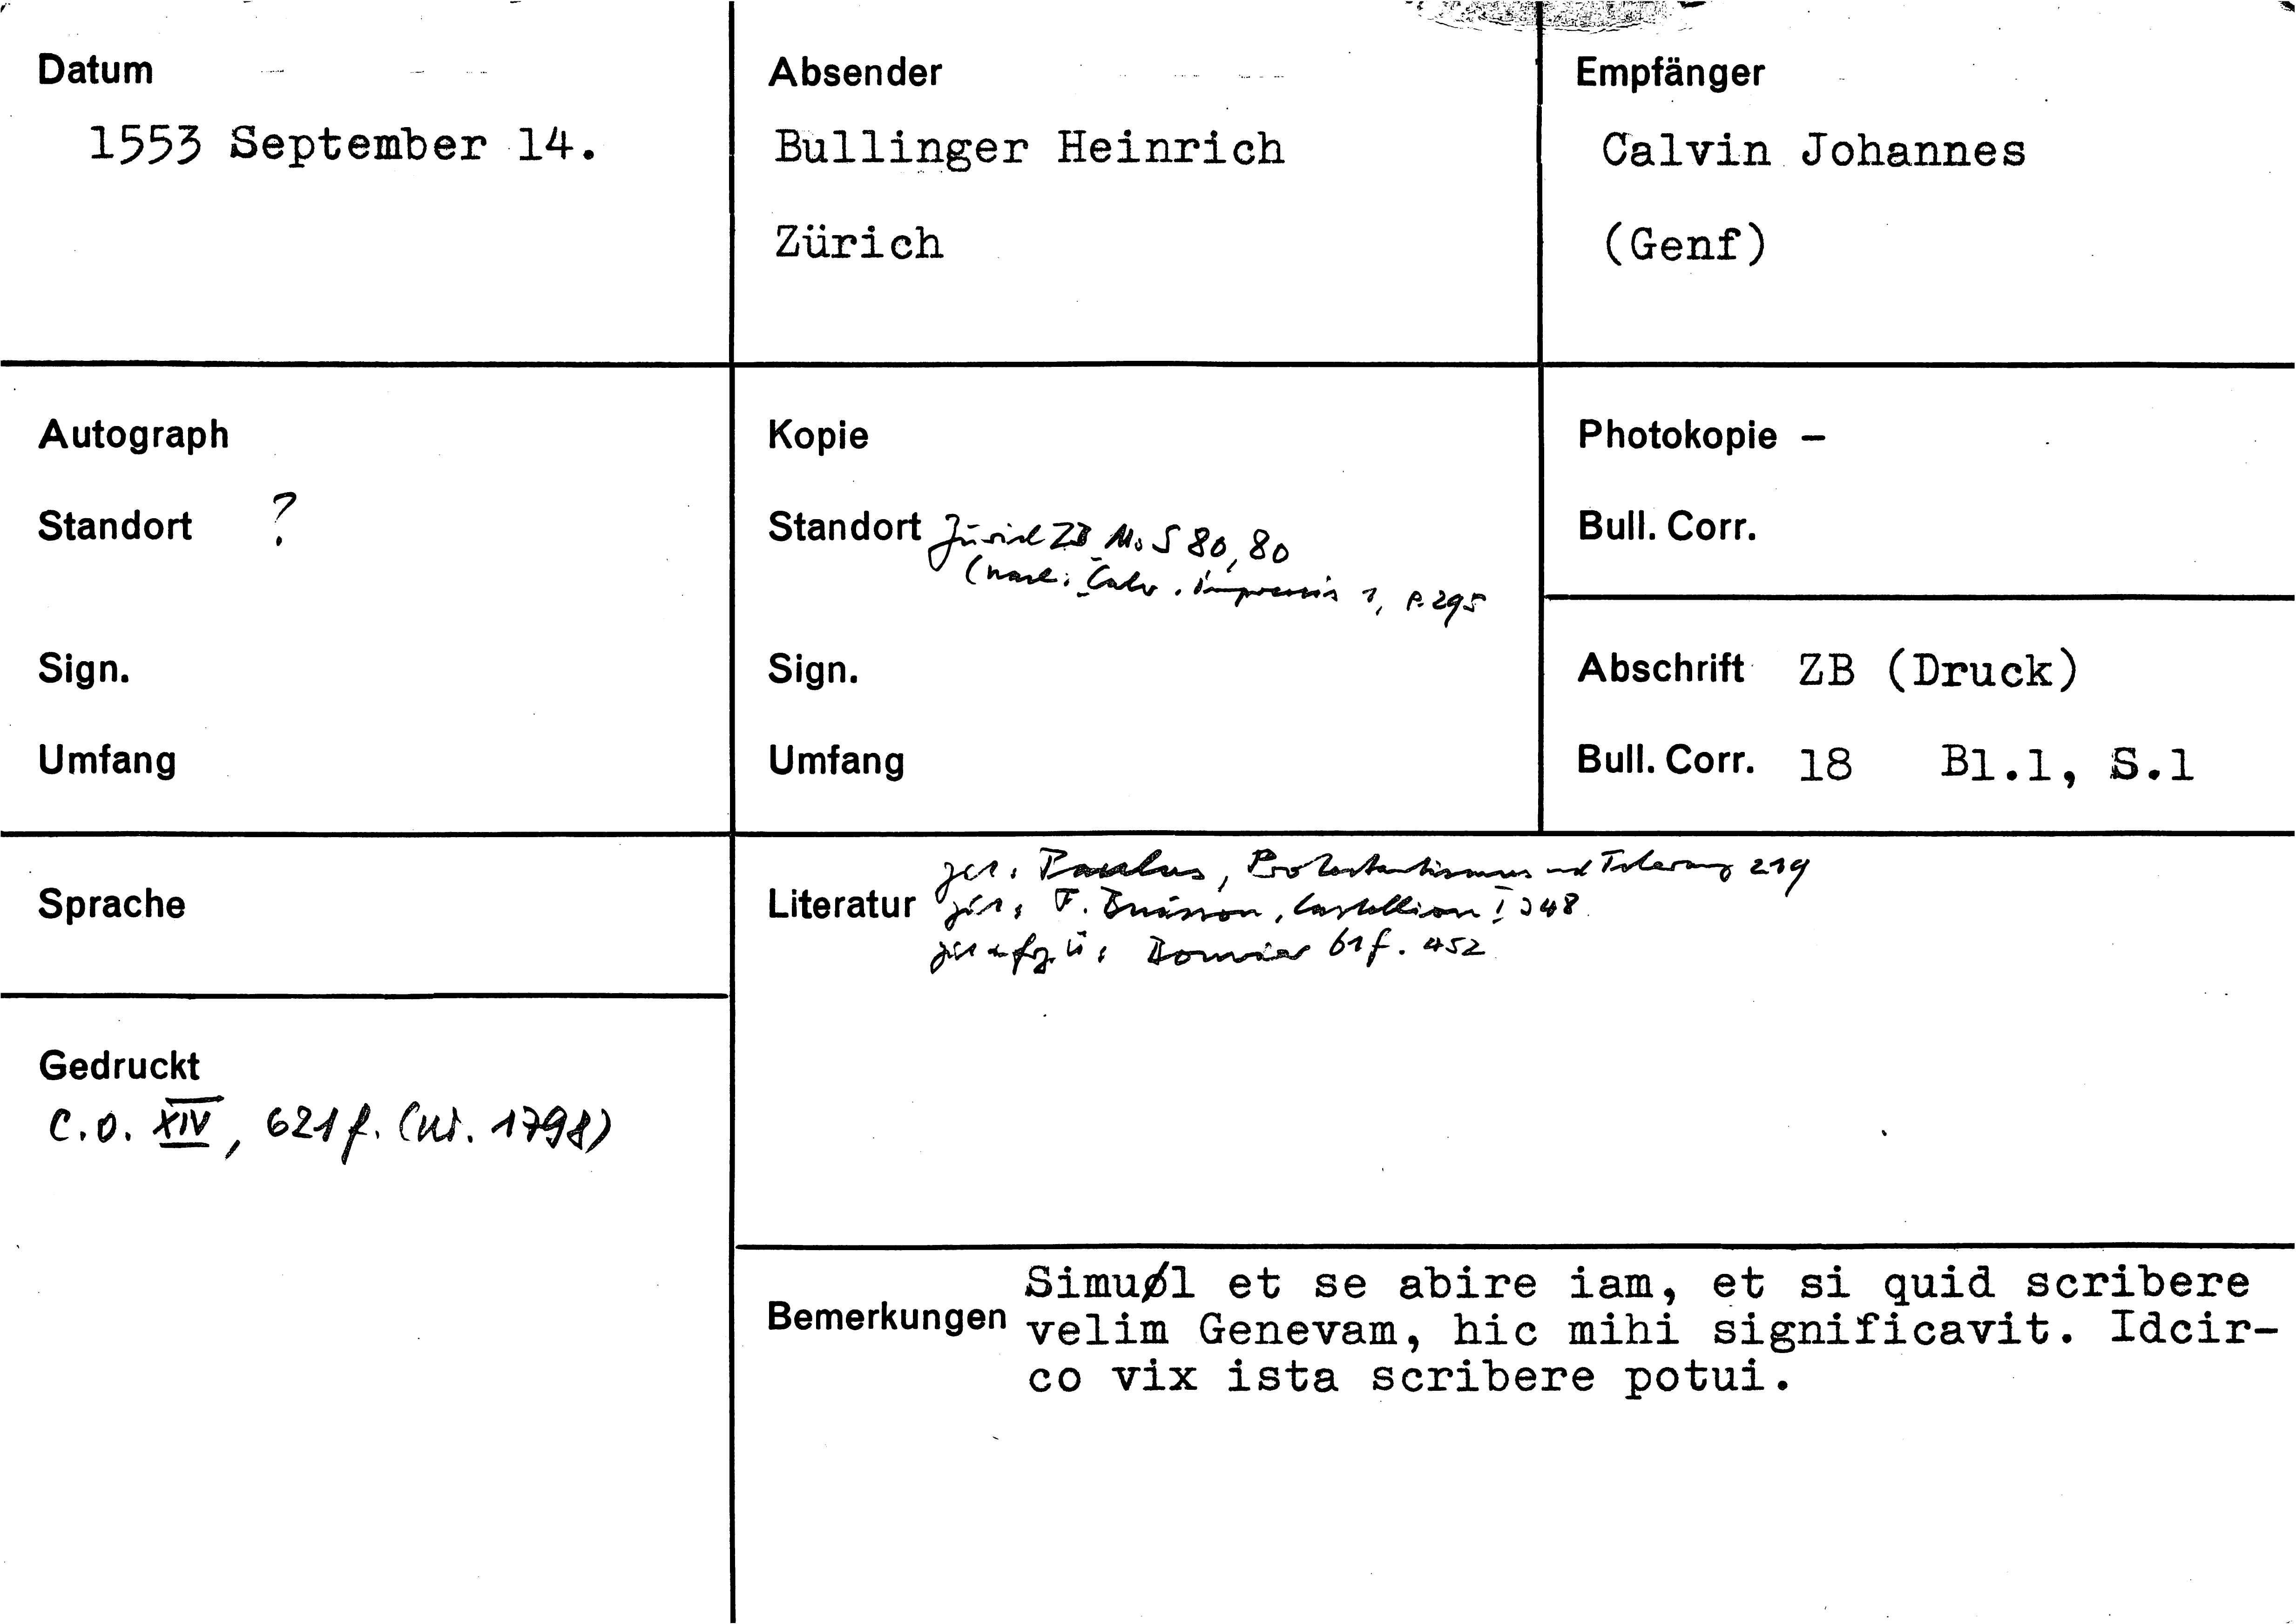 Datum
1553 September 14.
Absender
Bullinger Heinrich
Zürich
Empfänger
Calvin Johannes
(Genf)
Autograph
Standort ?
Sign.
Umfang
Kopie
Standort Zürich ZB Ms S 80, 80
(nach: Calv. impressis 1, p. 295
Sign.
Umfang
Photokopie –
Bull. Corr.
Abschrift ZB (Druck)
Bull. Corr. 18 Bl.1, S.1
Sprache
Gedruckt
C.O. XIV, 621 f. (Nr. 1798)
Literatur
zit: Paulus, Protestantismus und Toleranz 219
zit: F. Buisson, Castellion I 348
61 f. 452
Bemerkungen
Simuøl et se abire iam, et si quid scribere
velim Genevam, hic mihi significavit. Idcir-
co vix ista scribere potui.